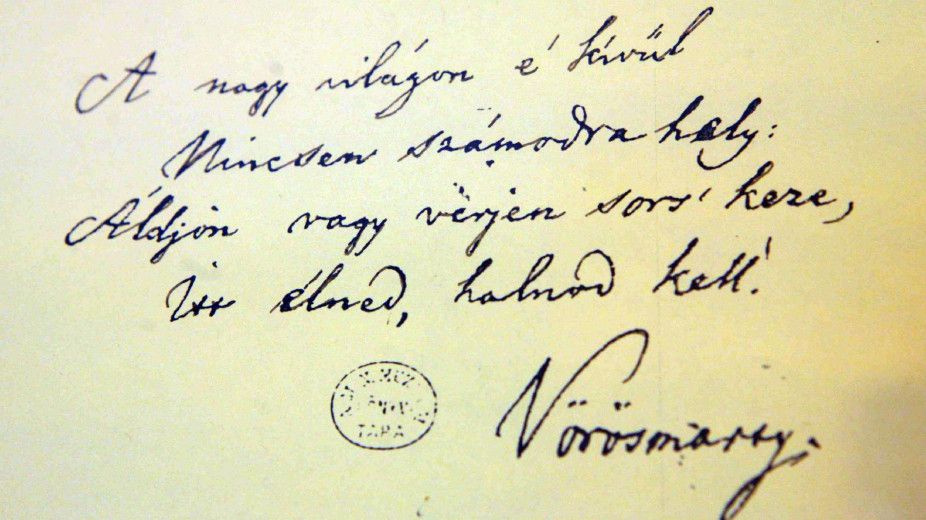 A nagy világon é kívül
Nincsen számodra hely:
Áldjon vagy verjen sors' keze,
Itt élned, halnod kell!
TÁRA
Vörösmarty.